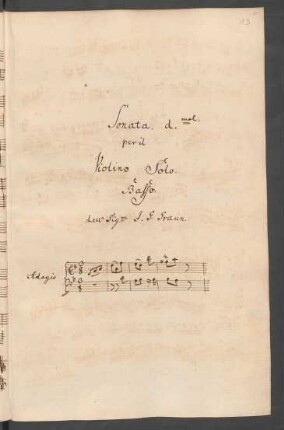 13
Sonata. d. mol.
per il
Violino Solo.
e
Basso.
del Sigr. J. G. Graun.
Adagio